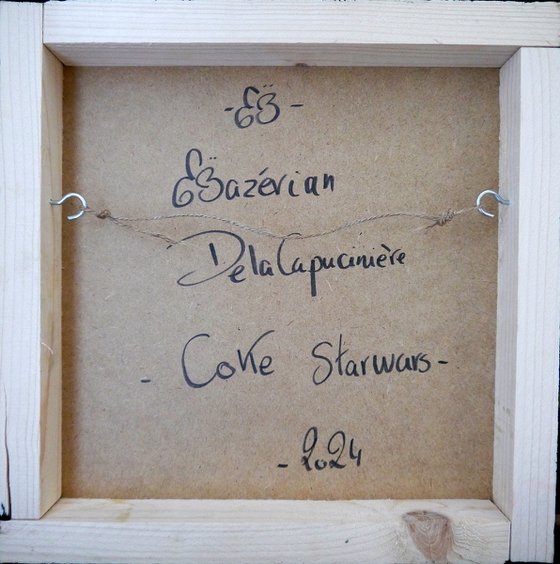 - EË -
EËazérian
DelaCapucinière
- Coke Starwars -
- 2024